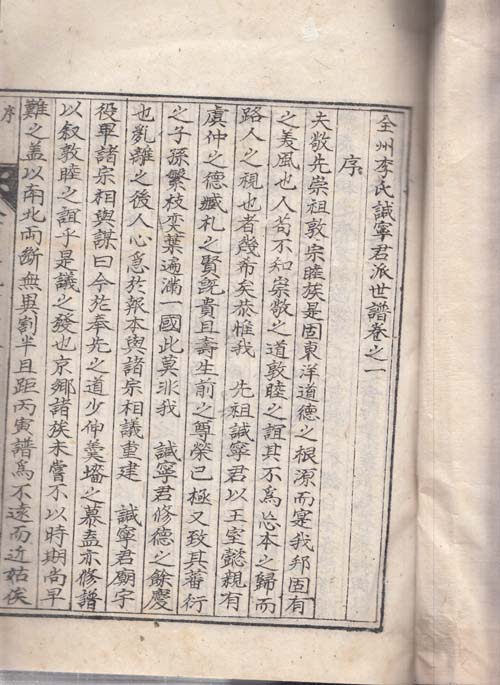 全州李氏諴寧君派世譜卷之一
序
夫敬先崇祖敦宗睦族是固東洋道德之根源而寔我邦固有
之美風也人苟不知崇敬之道敦睦之誼其不爲忘本之歸而
路人之視也者幾希矣恭惟我 先祖諴寧君以王室懿親有
虞仲之德臧札之賢旣貴且壽生前之尊榮已極又致其蕃衍
之子孫繁枝奕葉遍滿一國此莫非我 諴寧君修德之餘慶
也亂離之後人心急於報本與諸宗相議重建 諴寧君廟宇
役畢諸宗相與謀曰今於奉先之道少伸羹墻之慕盍亦修譜
以敍敦睦之誼乎是議之發也京鄕諸族未嘗不以時期尙早
難之盖以南北兩斷無異割半且距丙寅譜爲不遠而近姑俟
序